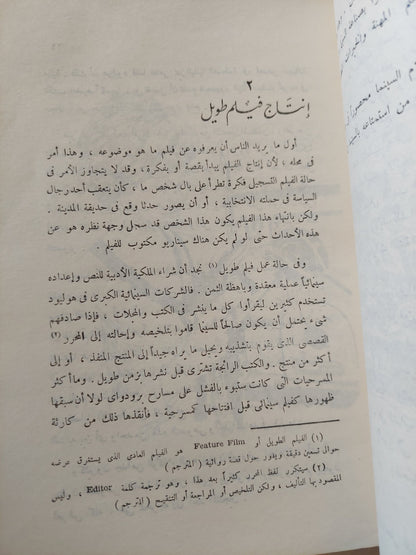 ٢
إنتاج فيلم طويل
أول ما يريد الناس أن يعرفوه عن فيلم ما هو موضوعه ، وهذا أمر
فى محله ، لأن إنتاج الفيلم يبدأ بقصة أو بفكرة ، وقد لا يتجاوز الأمر فى
حالة الفيلم التسجيلى فكرة تطرأ على بال شخص ما ، كأن يتعقب أحد رجال
السياسة فى حملته الانتخابية ، أو أن يصور حدثا وقع فى حديقة المدينة .
ولكن بانتهاء هذا الفيلم يكون هذا الشخص قد سجل وجهة نظره هو عن
هذه الأحداث حتى لو لم يكن هناك سيناريو مكتوب للفيلم .
وفى حالة عمل فيلم طويل (١) نجد أن شراء الملكية الأدبية للنص وإعداده
سينمائياً عملية معقدة وباهظة الثمن . فالشركات السينمائية الكبرى فى هوليود
تستخدم كثيرين ليقرأوا كل ما ينشر فى الكتب والمجلات ، فإذا صادفهم
شىء يحتمل أن يكون صالحاً للسينما قاموا بتلخيصه وإحالته إلى المحرر (٢)
القصصى الذى يقوم بتشذيبه ويحيل ما يراه جيداً إلى المنتج المنفذ ، أو إلى
أكثر من منتج . والكتب الرائجة تشترى قبل نشرها بزمن طويل . وما أكثر
المسرحيات التى كانت ستبوء بالفشل على مسارح برودواى لولا أن سبقها
ظهورها كفيلم سينمائى قبل افتتاحها كمسرحية ، فأنقذها ذلك من كارثة
(١) الفيلم الطويل أو Feature Film هو الفيلم العادى الذى يستغرق عرضه
حوالى تسعين دقيقة ويدور حول قصة روائية ( المترجم )
(٢) سيتكرر لفظ المحرر كثيراً بعد هذا ، وهو ترجمة كلمة Editor ، وليس
المقصود بها التأليف ، ولكن التلخيص أو المراجعة أو التنقيح ( المترجم )